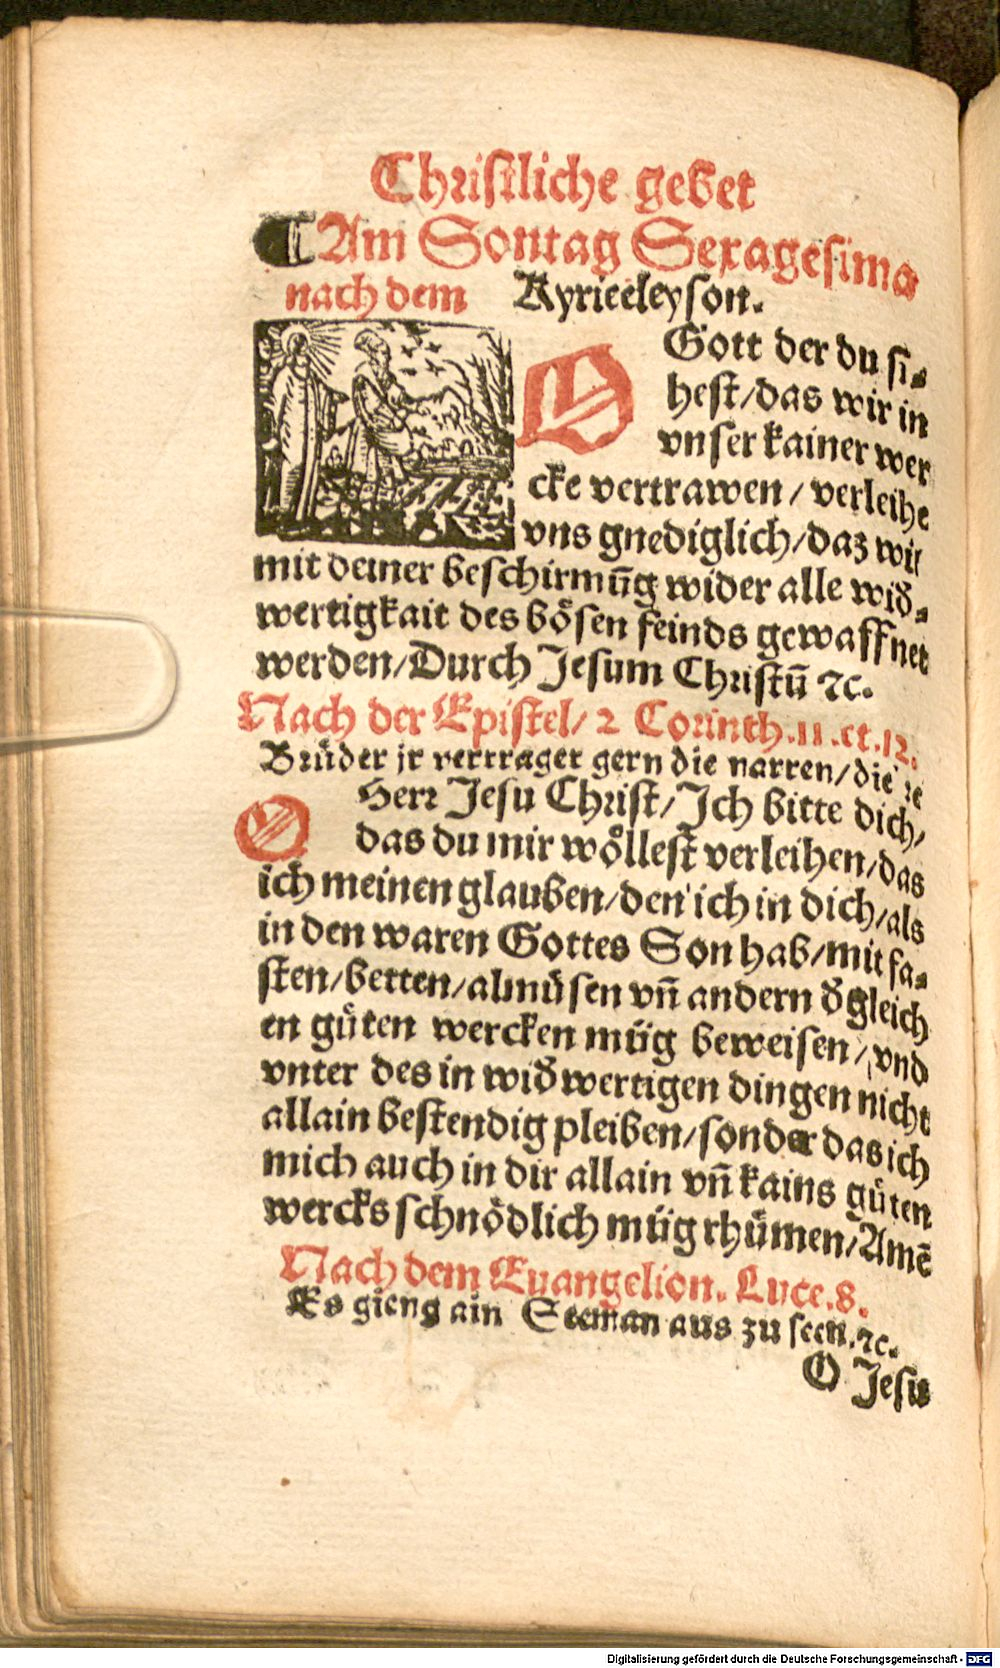 Christliche gebet
¶ Am Sontag Sexagesima
nach dem Kyrieeleyson.
O Gott der du si⸗
hest/das wir in
vnser kainer wer
cke vertrawen / verleihe
vns gnediglich/daz wir
mit deiner beschirmūg wider alle wid⸗
wertigkait des bösen feinds gewaffnet
werden/Durch Jesum Christū ⁊c.
Nach der Epistel/ 2 Corinth.11.et.12.
Brüder jr vertraget gern die narren/die ⁊c
O Herr Jesu Christ/Ich bitte dich/
das du mir wöllest verleihen/das
ich meinen glauben/den ich in dich/als
in den waren Gottes Son hab/mit fa⸗
sten/betten/almüsen vñ andern dgleich
en güten wercken müg beweisen / vnd
vnter des in widwertigen dingen nicht
allain bestendig pleiben/sonder das ich
mich auch in dir allain vñ kains güten
wercks schnödlich müg rhümen/Amē
Nach dem Euangelion. Luce.8.
Es gieng ain Seeman aus zu seen.⁊c.
O Jesu
Digitalisierung gefördert durch die Deutsche Forschungsgemeinschaft - DFG